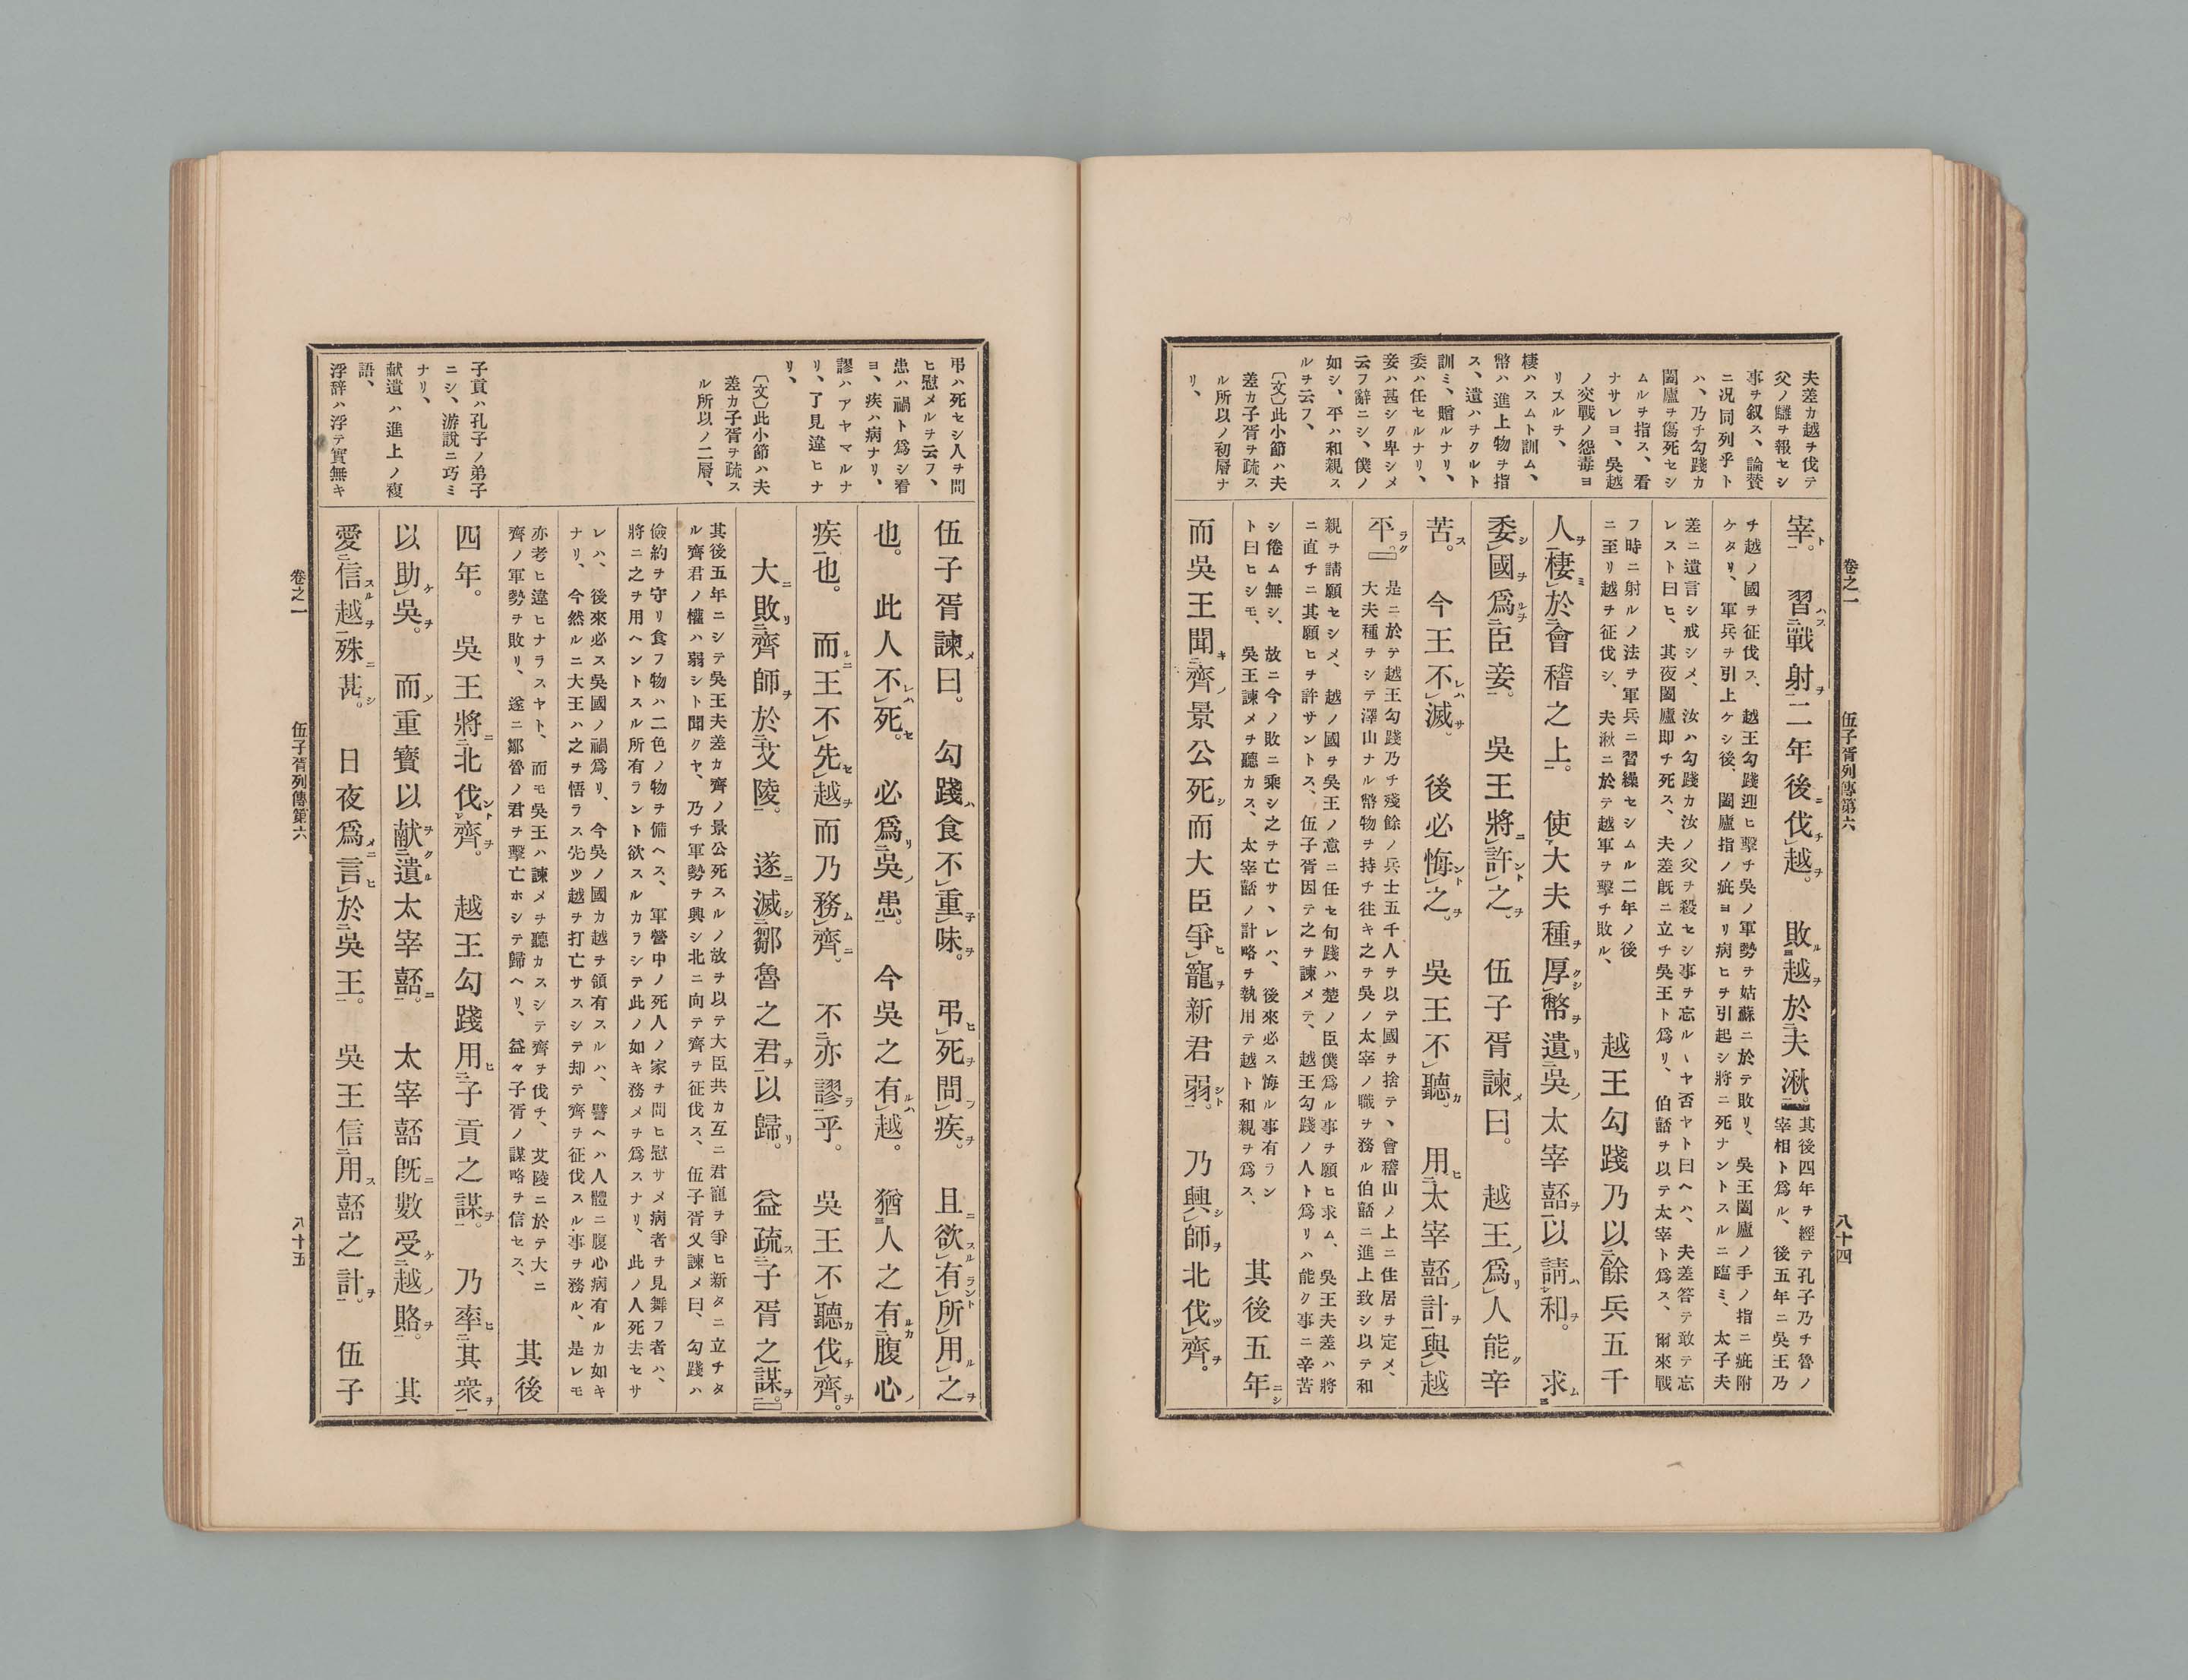 夫差カ越ヲ伐テ
父ノ讎ヲ報セシ
事ヲ叙ス、論賛
ニ况同列乎ト
ハ、乃チ勾踐カ
闔廬ヲ傷死セシ
ムルヲ指ス、看
ナサレヨ、吳越
ノ交戰ノ怨毒ヨ
リズルヲ、
棲ハスムト訓ム、
幣ハ進上物ヲ指
ス、遺ハヲクルト
訓ミ、贈ルナリ、
委ハ任セルナリ、
妾ハ甚シク卑シメ
云フ辭ニシ、僕ノ
如シ、平ハ和親ス
ルヲ云フ、
〔文〕此小節ハ夫
差カ子胥ヲ疏ス
ル所以ノ初層ナ
リ、
宰。習戰射二年後伐越。敗越於夫湫。其後四年ヲ經テ孔子乃チ魯ノ
宰相ト爲ル、後五年ニ吳王乃
チ越ノ國ヲ征伐ス、越王勾踐迎ヒ擊チ吳ノ軍勢ヲ姑蘇ニ於テ敗リ、吳王闔廬ノ手ノ指ニ疵附
ケタリ、軍兵ヲ引上ケシ後、闔廬指ノ疵ヨリ病ヒヲ引起シ將ニ死ナントスルニ臨ミ、太子夫
差ニ遺言シ戒シメ、汝ハ勾踐カ汝ノ父ヲ殺セシ事ヲ忘ルヽヤ否ヤト曰ヘハ、夫差答テ敢テ忘
レスト曰ヒ、其夜闔廬即チ死ス、夫差旣ニ立チ吳王ト爲リ、伯嚭ヲ以テ太宰ト爲ス、爾來戰
フ時ニ射ルノ法ヲ軍兵ニ習繰セシムル二年ノ後
ニ至リ越ヲ征伐シ、夫湫ニ於テ越軍ヲ擊チ敗ル、
越王勾踐乃以餘兵五千
人棲於會稽之上。使大夫種厚幣遺吳太宰嚭以請和。求
委國爲臣妾。吳王將許之。伍子胥諫曰。越王爲人能辛
苦。今王不滅。後必悔之。吳王不聽。用太宰嚭計與越
平。是ニ於テ越王勾踐乃チ殘餘ノ兵士五千人ヲ以テ國ヲ捨テ、會稽山ノ上ニ住居ヲ定メ、
大夫種ヲシテ澤山ナル幣物ヲ持チ往キ之ヲ吳ノ太宰ノ職ヲ務ル伯嚭ニ進上致シ以テ和
親ヲ請願セシメ、越ノ國ヲ吳王ノ意ニ任セ勾踐ハ楚ノ臣僕爲ル事ヲ願ヒ求ム、吳王夫差ハ將
ニ直チニ其願ヒヲ許サントス、伍子胥因テ之ヲ諫メテ、越王勾踐ノ人ト爲リハ能ク事ニ辛苦
シ倦ム無シ、故ニ今ノ敗ニ乘シ之ヲ亡サヽレハ、後來必ス悔ル事有ラン
ト曰ヒシモ、吳王諫メヲ聽カス、太宰嚭ノ計略ヲ執用テ越ト和親ヲ爲ス、
其後五年
而吳王聞齊景公死而大臣爭寵新君弱。乃興師北伐齊。
卷之一 伍子胥列傳第六 八十四
弔ハ死セシ人ヲ問
ヒ慰メルヲ云フ、
患ハ禍ト爲シ看
ヨ、疾ハ病ナリ、
謬ハアヤマルナ
リ、了見違ヒナ
リ、
〔文〕此小節ハ夫
差カ子胥ヲ疏ス
ル所以ノ二層、
子貢ハ孔子ノ弟子
ニシ、游說ニ巧ミ
ナリ、
献遺ハ進上ノ複
語、
浮辞ハ浮テ實無キ
伍子胥諫曰。勾踐食不重味。弔死問疾。且欲有所用之
也。此人不死。必爲吳患。今吳之有越。猶人之有腹心
疾也。而王不先越而乃務齊。不亦謬乎。吳王不聽伐齊。
大敗齊師於艾陵。遂滅鄒魯之君以歸。益疏子胥之謀。
其後五年ニシテ吳王夫差カ齊ノ景公死スルノ故ヲ以テ大臣共カ互ニ君寵ヲ爭ヒ新タニ立チタ
ル齊君ノ權ハ弱シト聞クヤ、乃チ軍勢ヲ興シ北ニ向テ齊ヲ征伐ス、伍子胥又諫メ曰、勾踐ハ
儉約ヲ守リ食フ物ハ二色ノ物ヲ備ヘス、軍營中ノ死人ノ家ヲ問ヒ慰サメ病者ヲ見舞フ者ハ、
將ニ之ヲ用ヘントスル所有ラント欲スルカラシテ此ノ如キ務メヲ爲スナリ、此ノ人死去セサ
レハ、後來必ス吳國ノ禍爲リ、今吳ノ國カ越ヲ領有スルハ、譬ヘハ人體ニ腹心病有ルカ如キ
ナリ、今然ルニ大王ハ之ヲ悟ラス先ツ越ヲ打亡サスシテ却テ齊ヲ征伐スル事ヲ務ル、是レモ
亦考ヒ違ヒナラスヤト、而モ吳王ハ諫メヲ聽カスシテ齊ヲ伐チ、艾陵ニ於テ大ニ
齊ノ軍勢ヲ敗リ、遂ニ鄒魯ノ君ヲ擊亡ホシテ歸ヘリ、益々子胥ノ謀略ヲ信セス、
其後
四年。吳王將北伐齊。越王勾踐用子貢之謀。乃率其衆
以助吳。而重寶以献遺太宰嚭。太宰嚭旣數受越賂。其
愛信越殊甚。日夜爲言於吳王。吳王信用嚭之計。伍子
卷之一 伍子胥列傳第六 八十五